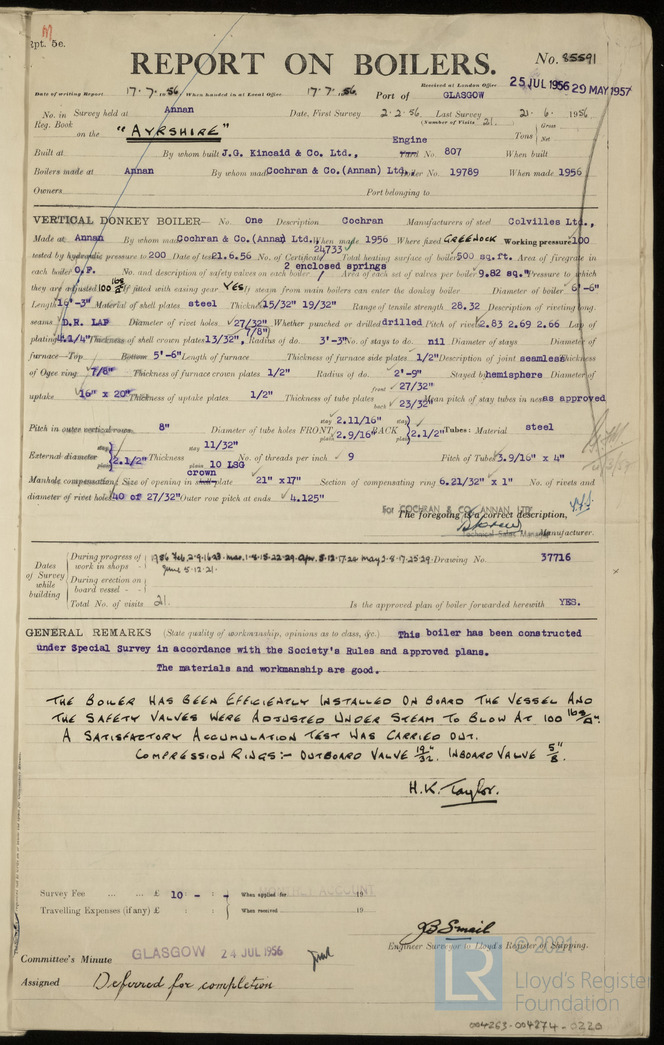 Rpt. 5c.
REPORT ON BOILERS.
No. 85591
Date of writing Report 17.7.1956 When handed in at Local Office 17.7.1956 Port of GLASGOW
Received at London Office 25 JUL 1956 29 MAY 1957
No. in Reg. Book Survey held at Annan Date, First Survey 2.2.56 Last Survey 21.6.1956
(Number of Visits 21.)
on the "AYRSHIRE" Tons Gross Net
Built at By whom built J.G. Kincaid & Co. Ltd., Engine Yard No. 807 When built
Boilers made at Annan By whom made Cochran & Co.(Annan) Ltd., Boiler No. 19789 When made 1956
Owners Port belonging to
VERTICAL DONKEY BOILER— No. One Description Cochran Manufacturers of steel Colvilles Ltd.,
Made at Annan By whom made Cochran & Co.(Annan) Ltd. When made 1956 Where fixed GREENOCK Working pressure 100
tested by hydraulic pressure to 200 Date of test 21.6.56 No. of Certificate 24733 Total heating surface of boiler 500 sq.ft. Area of firegrate in
each boiler O.F. No. and description of safety valves on each boiler 2 enclosed springs Area of each set of valves per boiler 9.82 sq." Pressure to which
they are adjusted 100 lbs/□" If fitted with easing gear YES If steam from main boilers can enter the donkey boiler Diameter of boiler 6'-6"
Length 16'-3" Material of shell plates steel Thickness 15/32" 19/32" Range of tensile strength 28.32 Description of riveting long.
seams D.R. LAP Diameter of rivet holes 27/32" (7/8") Whether punched or drilled drilled Pitch of rivets 2.83 2.69 2.66 Lap of
plating 4.1/4" Thickness of shell crown plates 13/32" Radius of do. 3'-3" No. of stays to do. nil Diameter of stays Diameter of
furnace—Top Bottom 5'-6" Length of furnace Thickness of furnace side plates 1/2" Description of joint seamless Thickness
of Ogee ring 7/8" Thickness of furnace crown plates 1/2" Radius of do. 2'-9" Stayed by hemisphere Diameter of
uptake 16" x 20" Thickness of uptake plates 1/2" Thickness of tube plates front 27/32" back 23/32" Mean pitch of stay tubes in nests as approved
Pitch in outer vertical rows 8" Diameter of tube holes FRONT stay 2.11/16" plain 2.9/16" BACK stay plain 2.1/2" Tubes: Material steel
External diameter stay plain 2.1/2" Thickness stay 11/32" plain 10 LSG No. of threads per inch 9 Pitch of Tubes 3.9/16" x 4"
Manhole compensation: Size of opening in shell plate crown 21" x 17" Section of compensating ring 6.21/32" x 1" No. of rivets and
diameter of rivet holes 40 of 27/32" Outer row pitch at ends 4.125"
For COCHRAN & CO. ANNAN LTD.
The foregoing is a correct description,
Technical Sales Manager Manufacturer.
Dates of Survey while building
During progress of work in shops - 1956 Feb. 2.9.16.23. Mar. 1.8.15.22.29. Apr. 5.12.17.26 May 3.8.17.25.29. Drawing No. 37716
June 5.12.21.
During erection on board vessel - -
Total No. of visits 21. Is the approved plan of boiler forwarded herewith YES.
GENERAL REMARKS (State quality of workmanship, opinions as to class, &c.) This boiler has been constructed
under Special Survey in accordance with the Society's Rules and approved plans.
The materials and workmanship are good.
THE BOILER HAS BEEN EFFICIENTLY INSTALLED ON BOARD THE VESSEL AND
THE SAFETY VALVES WERE ADJUSTED UNDER STEAM TO BLOW AT 100 lbs/□"
A SATISFACTORY ACCUMULATION TEST WAS CARRIED OUT.
COMPRESSION RINGS:- OUTBOARD VALVE 19/32". INBOARD VALVE 5/8".
H.K. Taylor.
Survey Fee ... ... £ 10 - : - When applied for 19
Travelling Expenses (if any) £ : : When received 19
JB Smail
Engineer Surveyor to Lloyd's Register of Shipping.
Committee's Minute GLASGOW 24 JUL 1956
Assigned Deferred for completion
© 2021
LR
Lloyd's Register
Foundation
004263-004274-0220